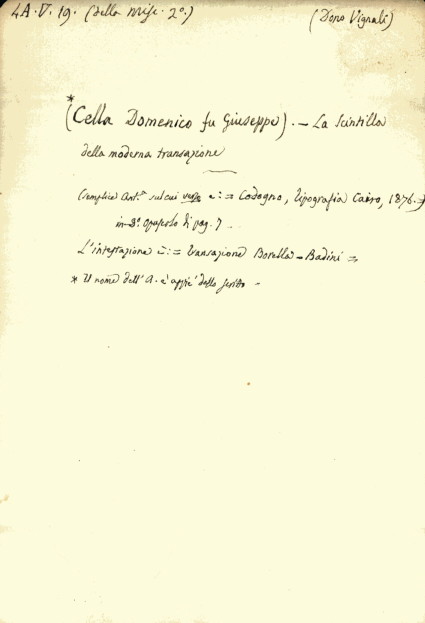 4A.V.19. (della Misc. 2º.) (Dono Vignali)
*
(Cella Domenico fu Giuseppe). — La Scintilla
della moderna transazione
(semplice Ant.ª sul cui verso è: = Codogno, tipografia Cairo, 1876. =)
in 8º. Opuscolo di pag. 7
L'intestazione è: = transazione Borella - Badini =
* Il nome dell'A. è appie' dello scritto -